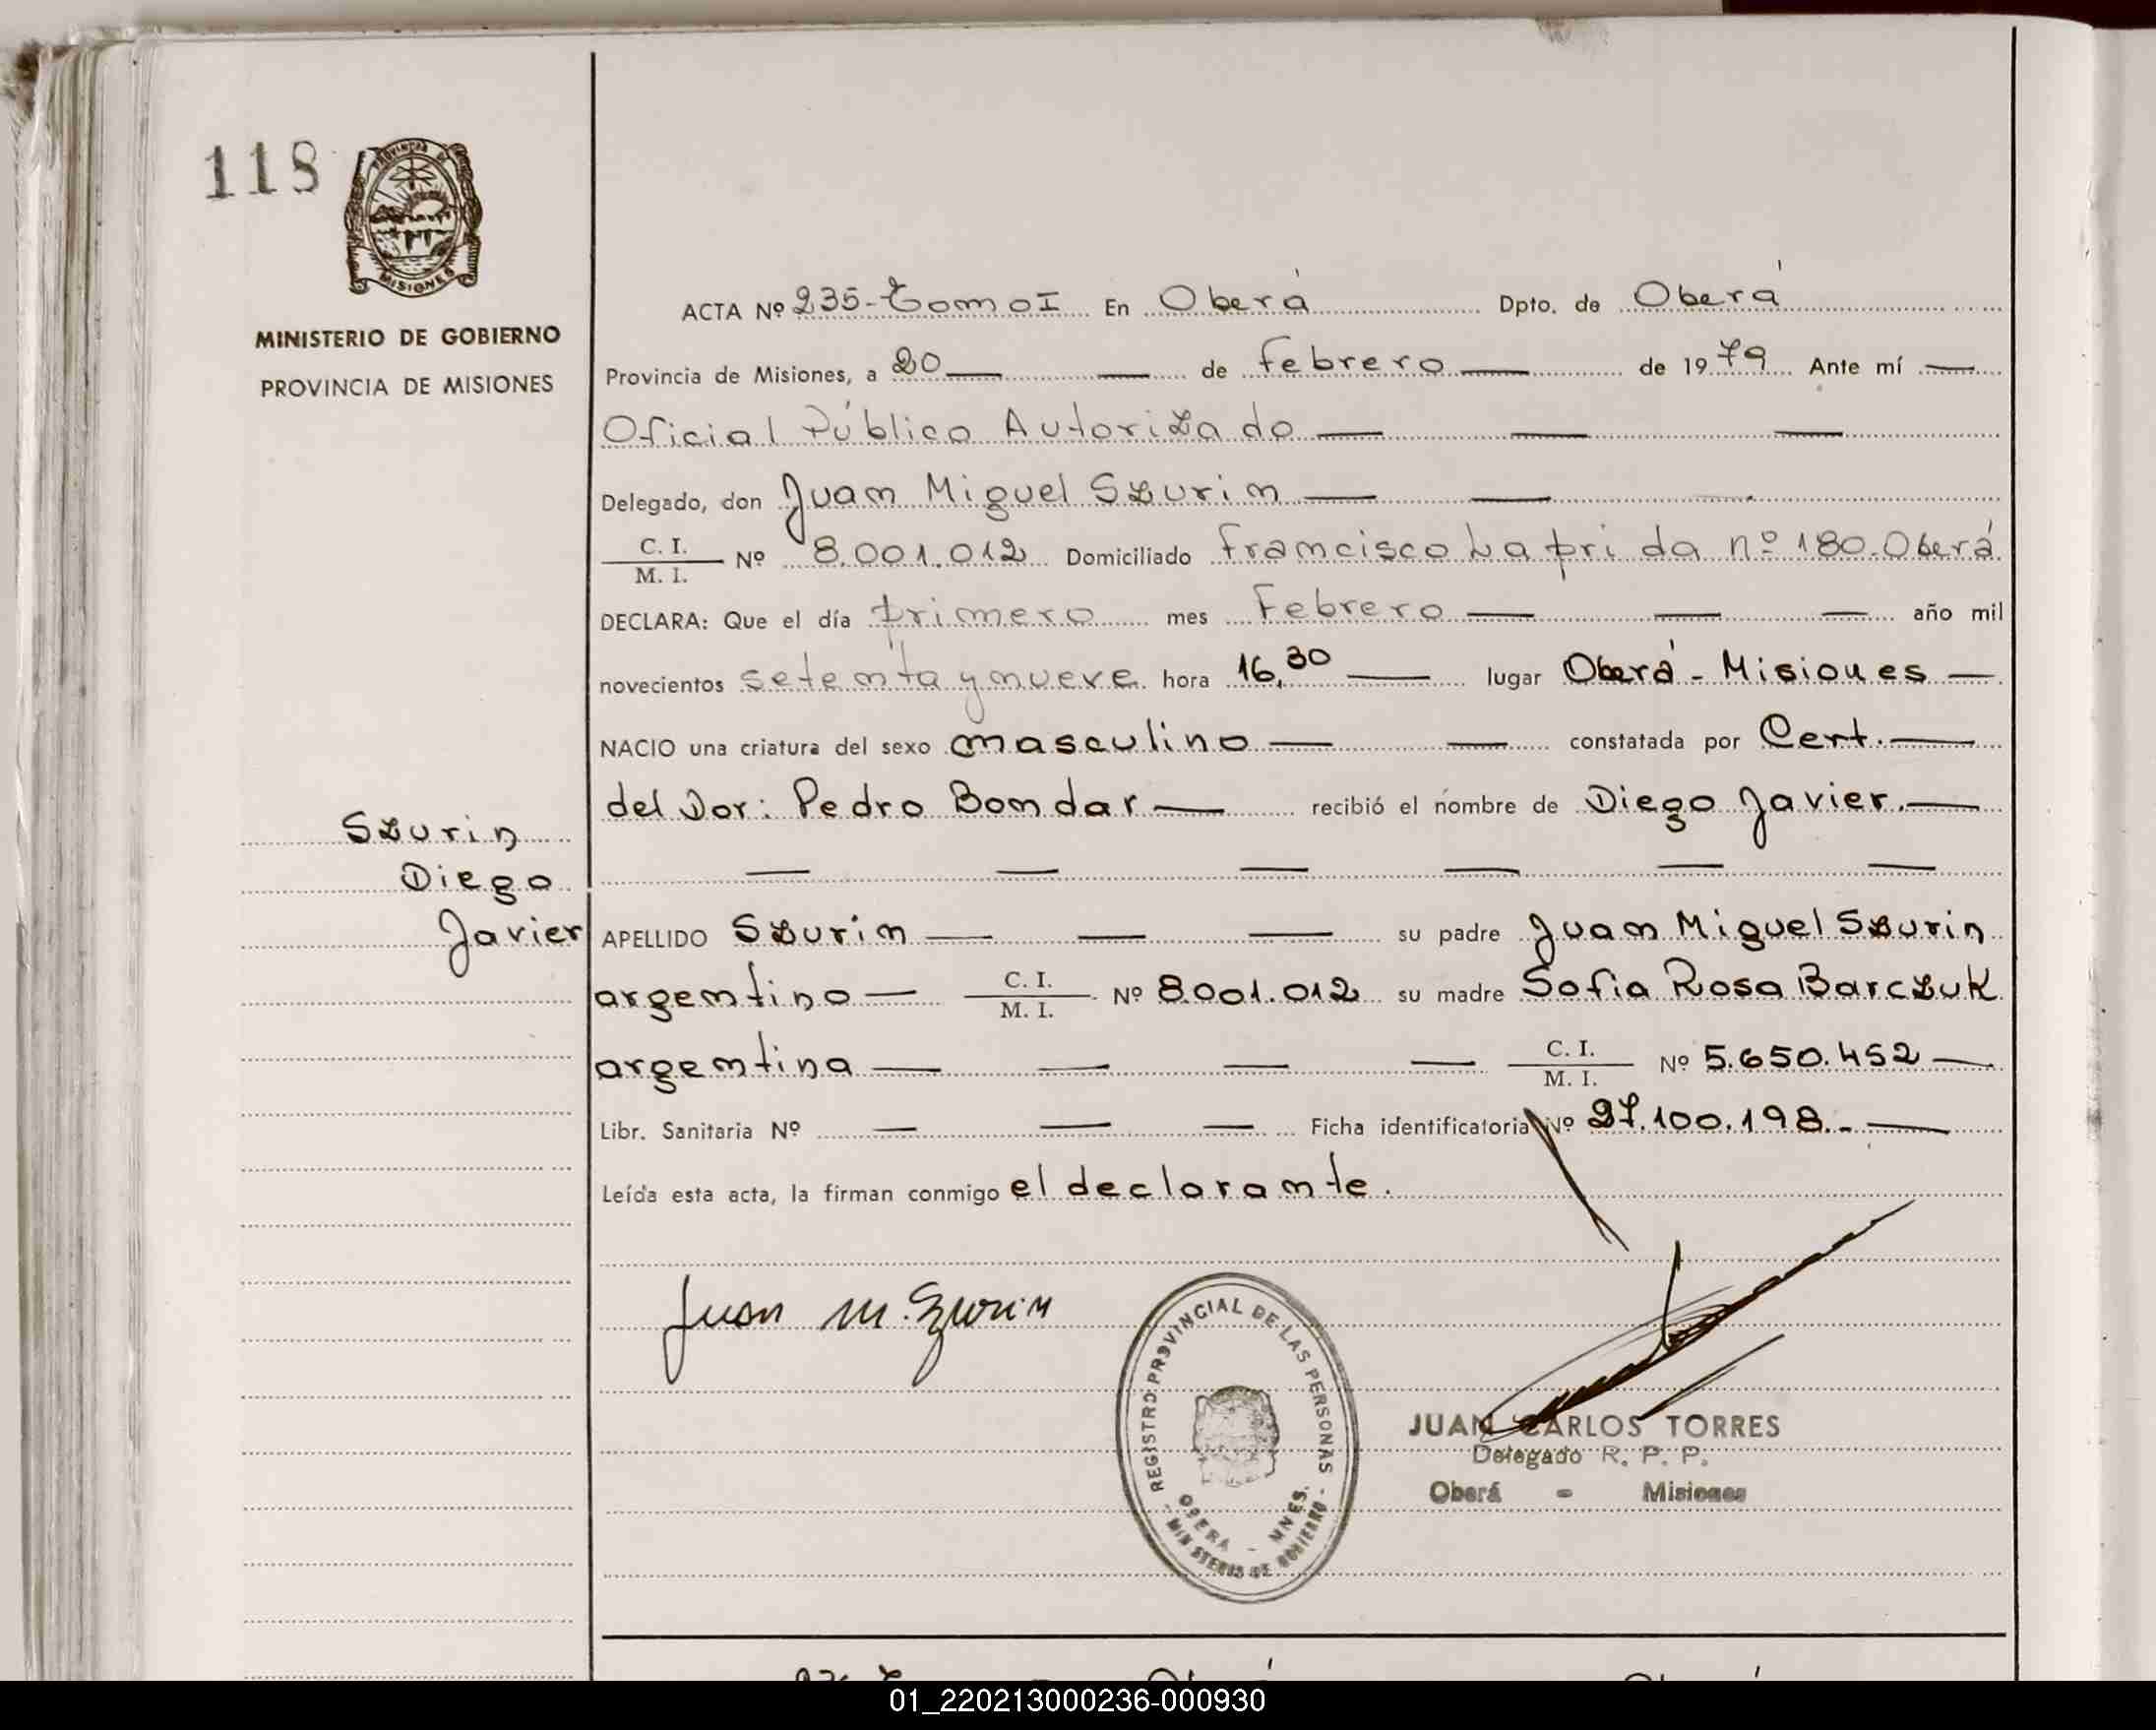 118
PROVINCIA DE
MISIONES
MINISTERIO DE GOBIERNO
PROVINCIA DE MISIONES
Szurin
Diego
Javier
ACTA Nº 235-Tomo I En Oberá Dpto. de Oberá
Provincia de Misiones, a 20 — — de Febrero — de 1979 Ante mí —
Oficial Público Autorizado — — —
Delegado, don Juan Miguel Szurin — — —
C. I.
M. I. Nº 8.001.012 Domiciliado Francisco Laprida nº 180. Oberá
DECLARA: Que el día primero mes Febrero — — — año mil
novecientos setenta y nueve hora 16,30 — lugar Oberá - Misiones —
NACIO una criatura del sexo masculino — — constatada por Cert. —
del Dor: Pedro Bondar — recibió el nombre de Diego Javier. —
— — — — — —
APELLIDO Szurin — — — su padre Juan Miguel Szurin
argentino — C. I. / M. I. Nº 8.001.012 su madre Sofia Rosa Barczuk
argentina — — — — C. I. / M. I. Nº 5.650.452 —
Libr. Sanitaria Nº — — — Ficha identificatoria Nº 27.100.198.- —
Leída esta acta, la firman conmigo el declarante.
Juan M. Szurin
REGISTRO PROVINCIAL DE LAS PERSONAS
OBERA - MNES.
- MINISTERIO DE GOBIERNO -
JUAN CARLOS TORRES
Delegado R. P. P.
Oberá - Misiones
01_220213000236-000930